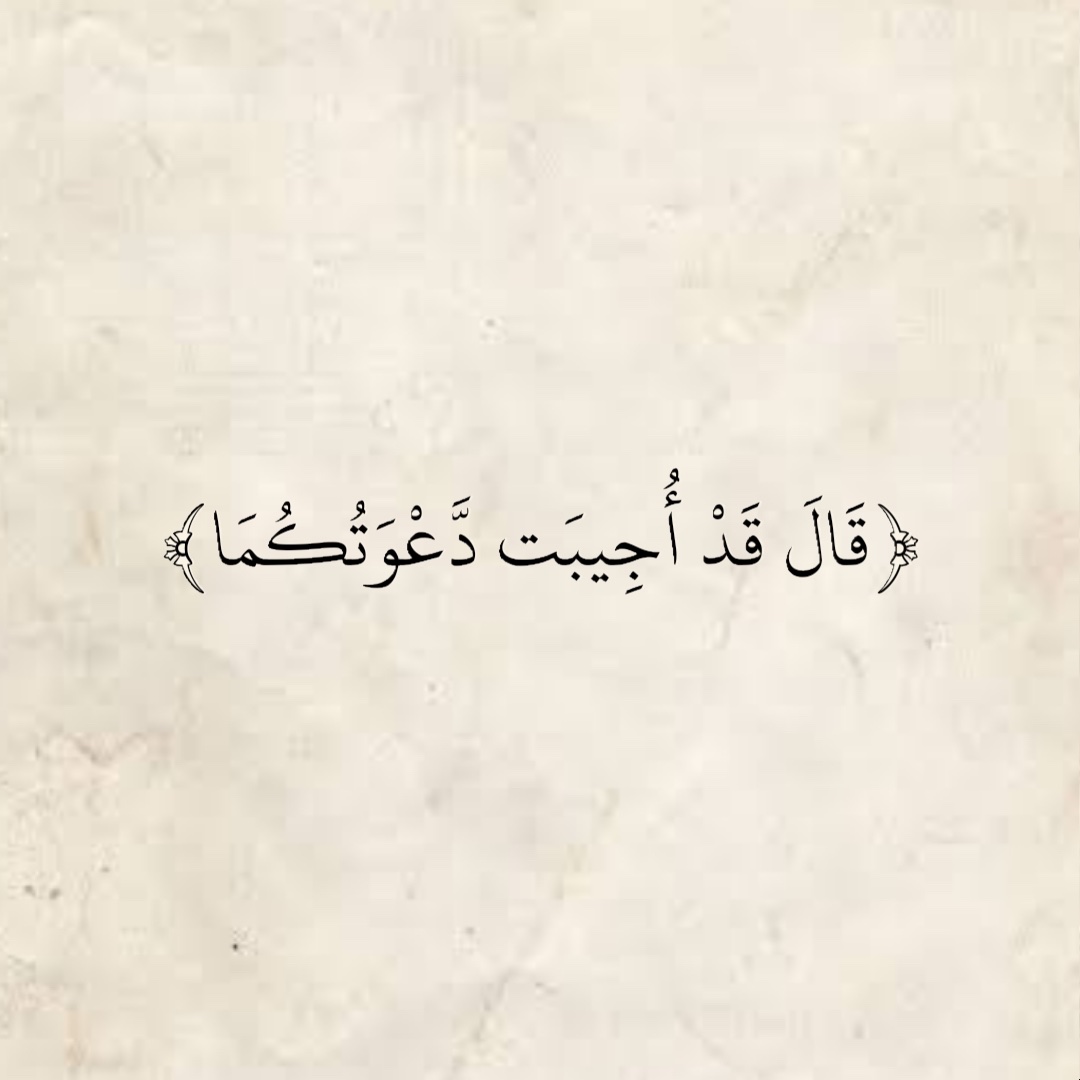 ﴿قَالَ قَدْ أُجِيبَت دَّعْوَتُكُمَا﴾